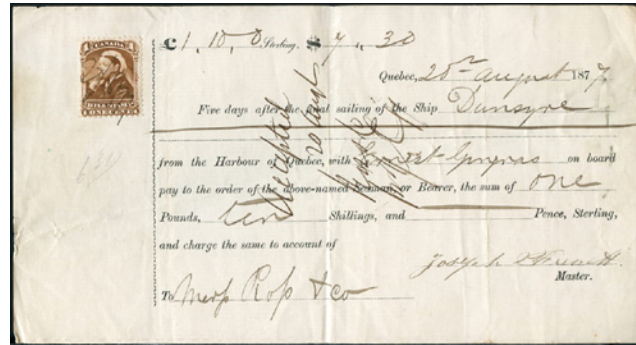 CANADA
BILL STAMP
ONE CENT
£1, 10, 0 Sterling. $7, 30
Quebec, 25th August 1877
Five days after the final sailing of the Ship Dunsyre
from the Harbour of Quebec, with Ernest Gingras on board
pay to the order of the above-named Seaman, or Bearer, the sum of one
Pounds, ten Shillings, and Pence, Sterling,
and charge the same to account of
Joseph
Master.
To Messrs Ross & co
Accepted